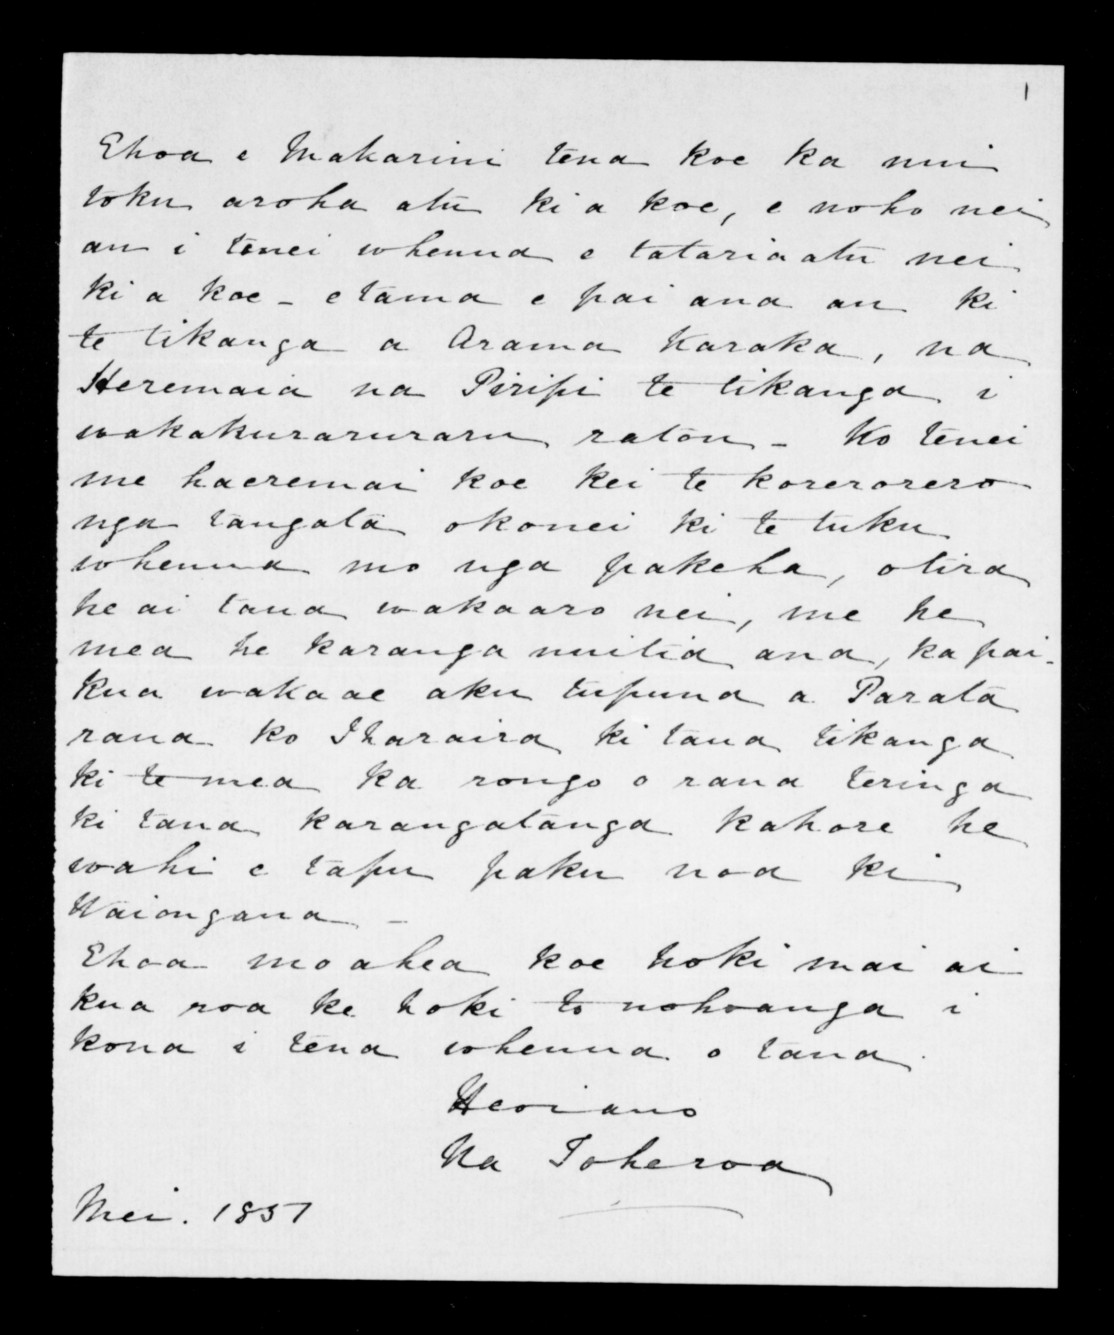 1
Ehoa e Makarini tena koe ka nui
toku aroha atu ki a koe, e noho nei
au i tenei whenua e tatariaatu nei
ki a koe - etama e pai ana au ki
te tikanga a Arama Karaka, na
Heremaia na Piripi te tikanga i
wakakuraruraru ratou - Ko tenei
me haeremai koe kei te korerorero
nga tangata okonei ki te tuku
whenua mo nga pakeha, otira
he ai taua wakaaro nei, me he
mea he karanga nuitia ana, ka pai.
kua wakaae aku tupuna a Parata
raua ko Iharaira ki taua tikanga
ki te mea ka rongo o raua teringa
ki taua karangatanga kahore he
wahi e tapu paku noa ki
Waiongana -
Ehoa mo ahea koe hoki mai ai
kua roa ke hoki to nohoanga i
kona i tena whenua o taua.
Heoiano
Na Toheroa
Mei. 1857